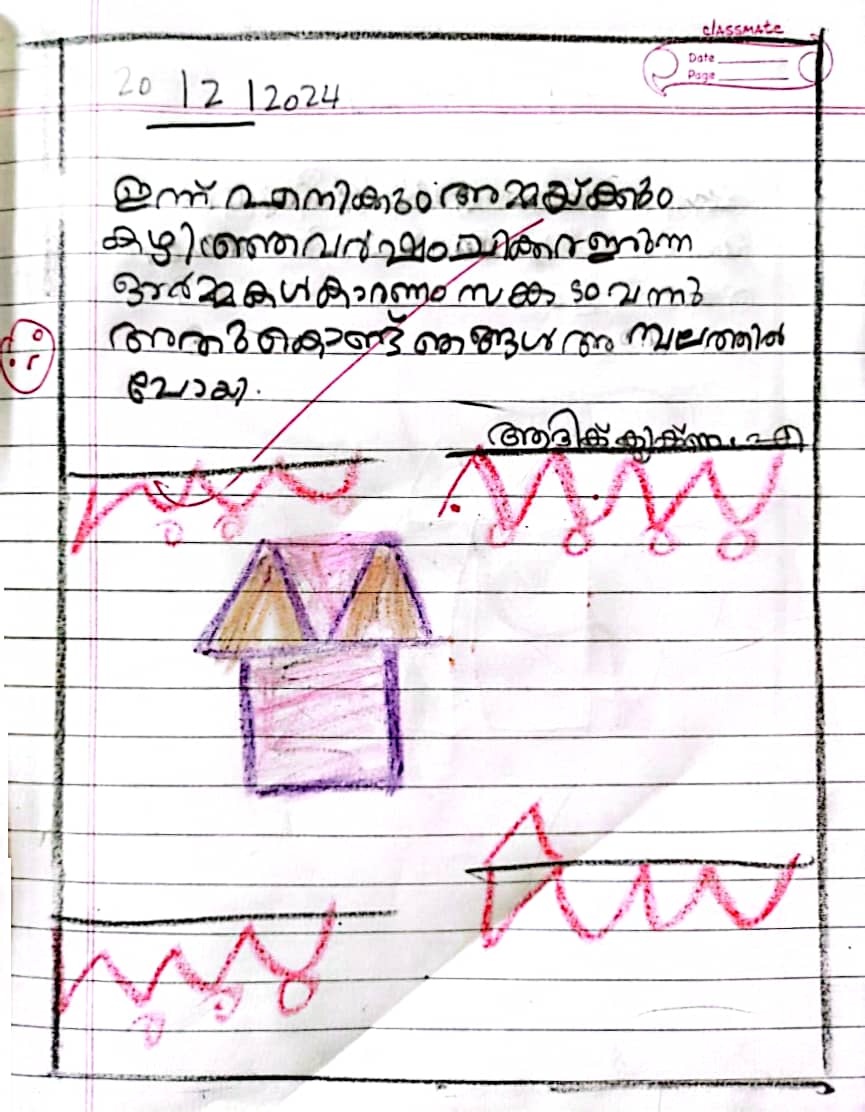 classmate
Date
Page
20/12/2024
ഇന്ന് എനിക്കും അമ്മയ്ക്കും
കഴിഞ്ഞവർഷം
ഓർമ്മകൾ കാരണം സങ്കടം വന്നു
അതുകൊണ്ട് ഞങ്ങൾ അമ്പലത്തിൽ
പോയി.